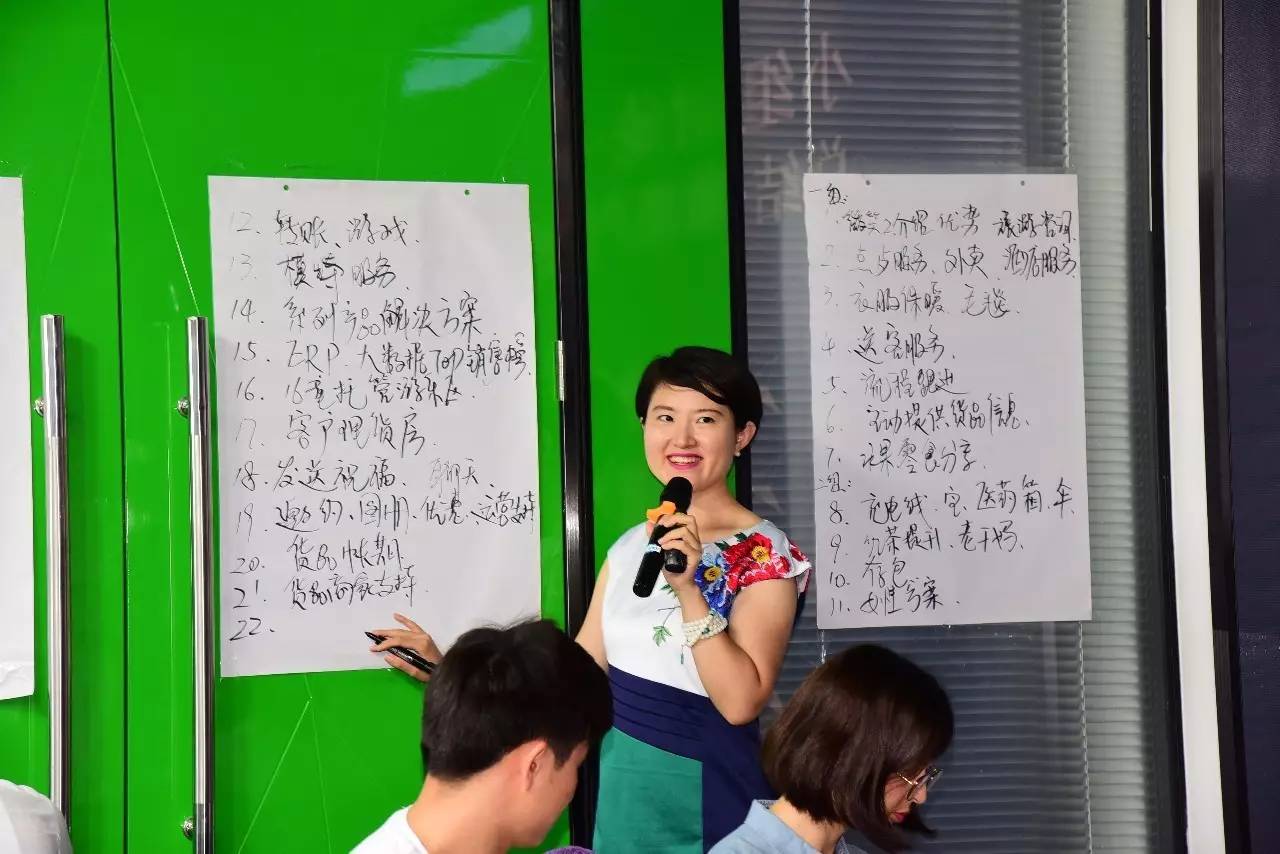 一组:
1. 微笑 介绍 优势 旅游咨询
2. 点步服务、外卖 酒店服务
3. 衣服保暖、毛毯、
4. 送客服务、
5. 流程跟进
6. 主动提供货品信息、
7. 水果零食分享
二组:
8. 充电线、宝、医药箱、伞
9. 奶茶提升、老干妈、
10. 存包
11. 女性方案、
12. 转账、游戏、
13. 模特服务、
14. 系列产品解决方案
15. ERP、大数据TOP销售榜、
16. 托管游乐区、
17. 客户理货房、
18. 发送祝福、聊天、
19. 邀约、图册、优惠、运营支持
20. 货品帐期
21. 货品商家支持
22.
小组